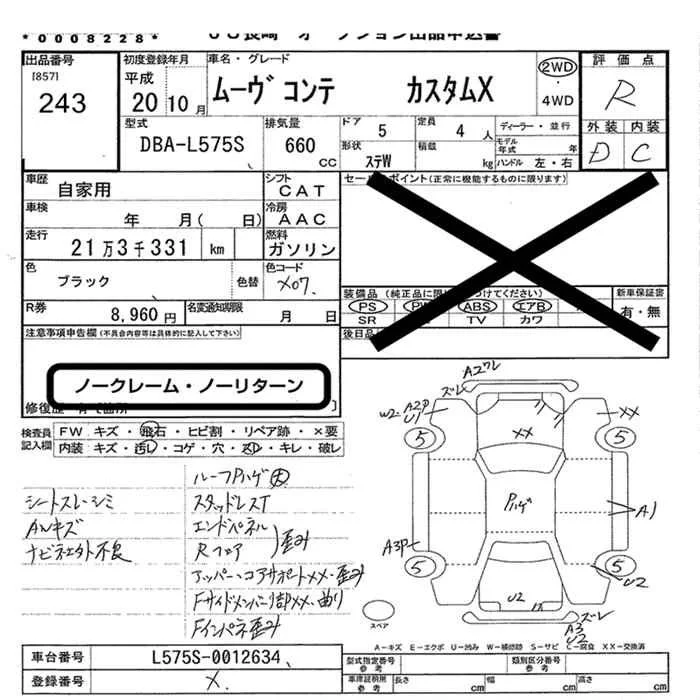 *0008228*
出品番号 [857] 243
初度登録年月 平成 20 10月
車名・グレード ムーヴ コンテ カスタムX
2WD ・ 4WD
評価点 R
外装 内装 D C
型式 DBA-L575S
排気量 660 CC
ドア 5
定員 4 人
形状 ステW
積載 kg
ディーラー・並行
モデル年式 年
ハンドル 左・右
車歴 自家用
シフト CAT
車検 年 月( 日)
冷房 AAC
走行 21万3千331 km
燃料 ガソリン
色 ブラック 色替
色コード X07.
R券 8,960円
名変通知期限 月 日
セールスポイント(正常に機能するものに限ります)
PS ABS エアB
SR TV カワ
新車保証書 有・無
後日品
注意事項申告欄(不具合内容等は具体的に記入して下さい)
ノークレーム・ノーリターン
検査員記入欄
FW キズ・飛石・ヒビ割・リペア跡・×要
内装 キズ・汚レ・コゲ・穴・スレ・キレ・破レ
ルーフPハゲ大
シートスレ・シミ
スタッドレスT
AWキズ
エンドパネル
ナビモニタ外不良
Rフロア 歪み
アッパー・コアサポートXX・歪み
FサイドメンバーL部XX・曲り
Fインパネ歪み
A2ワレ
ズレ
W2 A2P
U1
XX
XX
5
5
Pハゲ
A1
A3P
5
5
U2
U2
ズレ
A3
U2
スペア
A-キズ E-エクボ U-凹み W-補修跡 S-サビ C-腐食 XX-交換済
車台番号 L575S-0012634
登録番号 X.
型式指定番号 参考
類別区分番号 参考
車庫証明用 参考 長さ cm 幅 cm 高さ cm